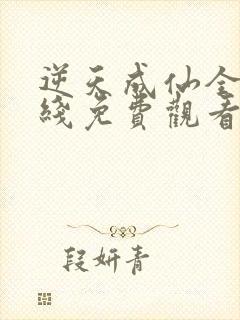 逆天成仙全
綫免費觀看
段妍青